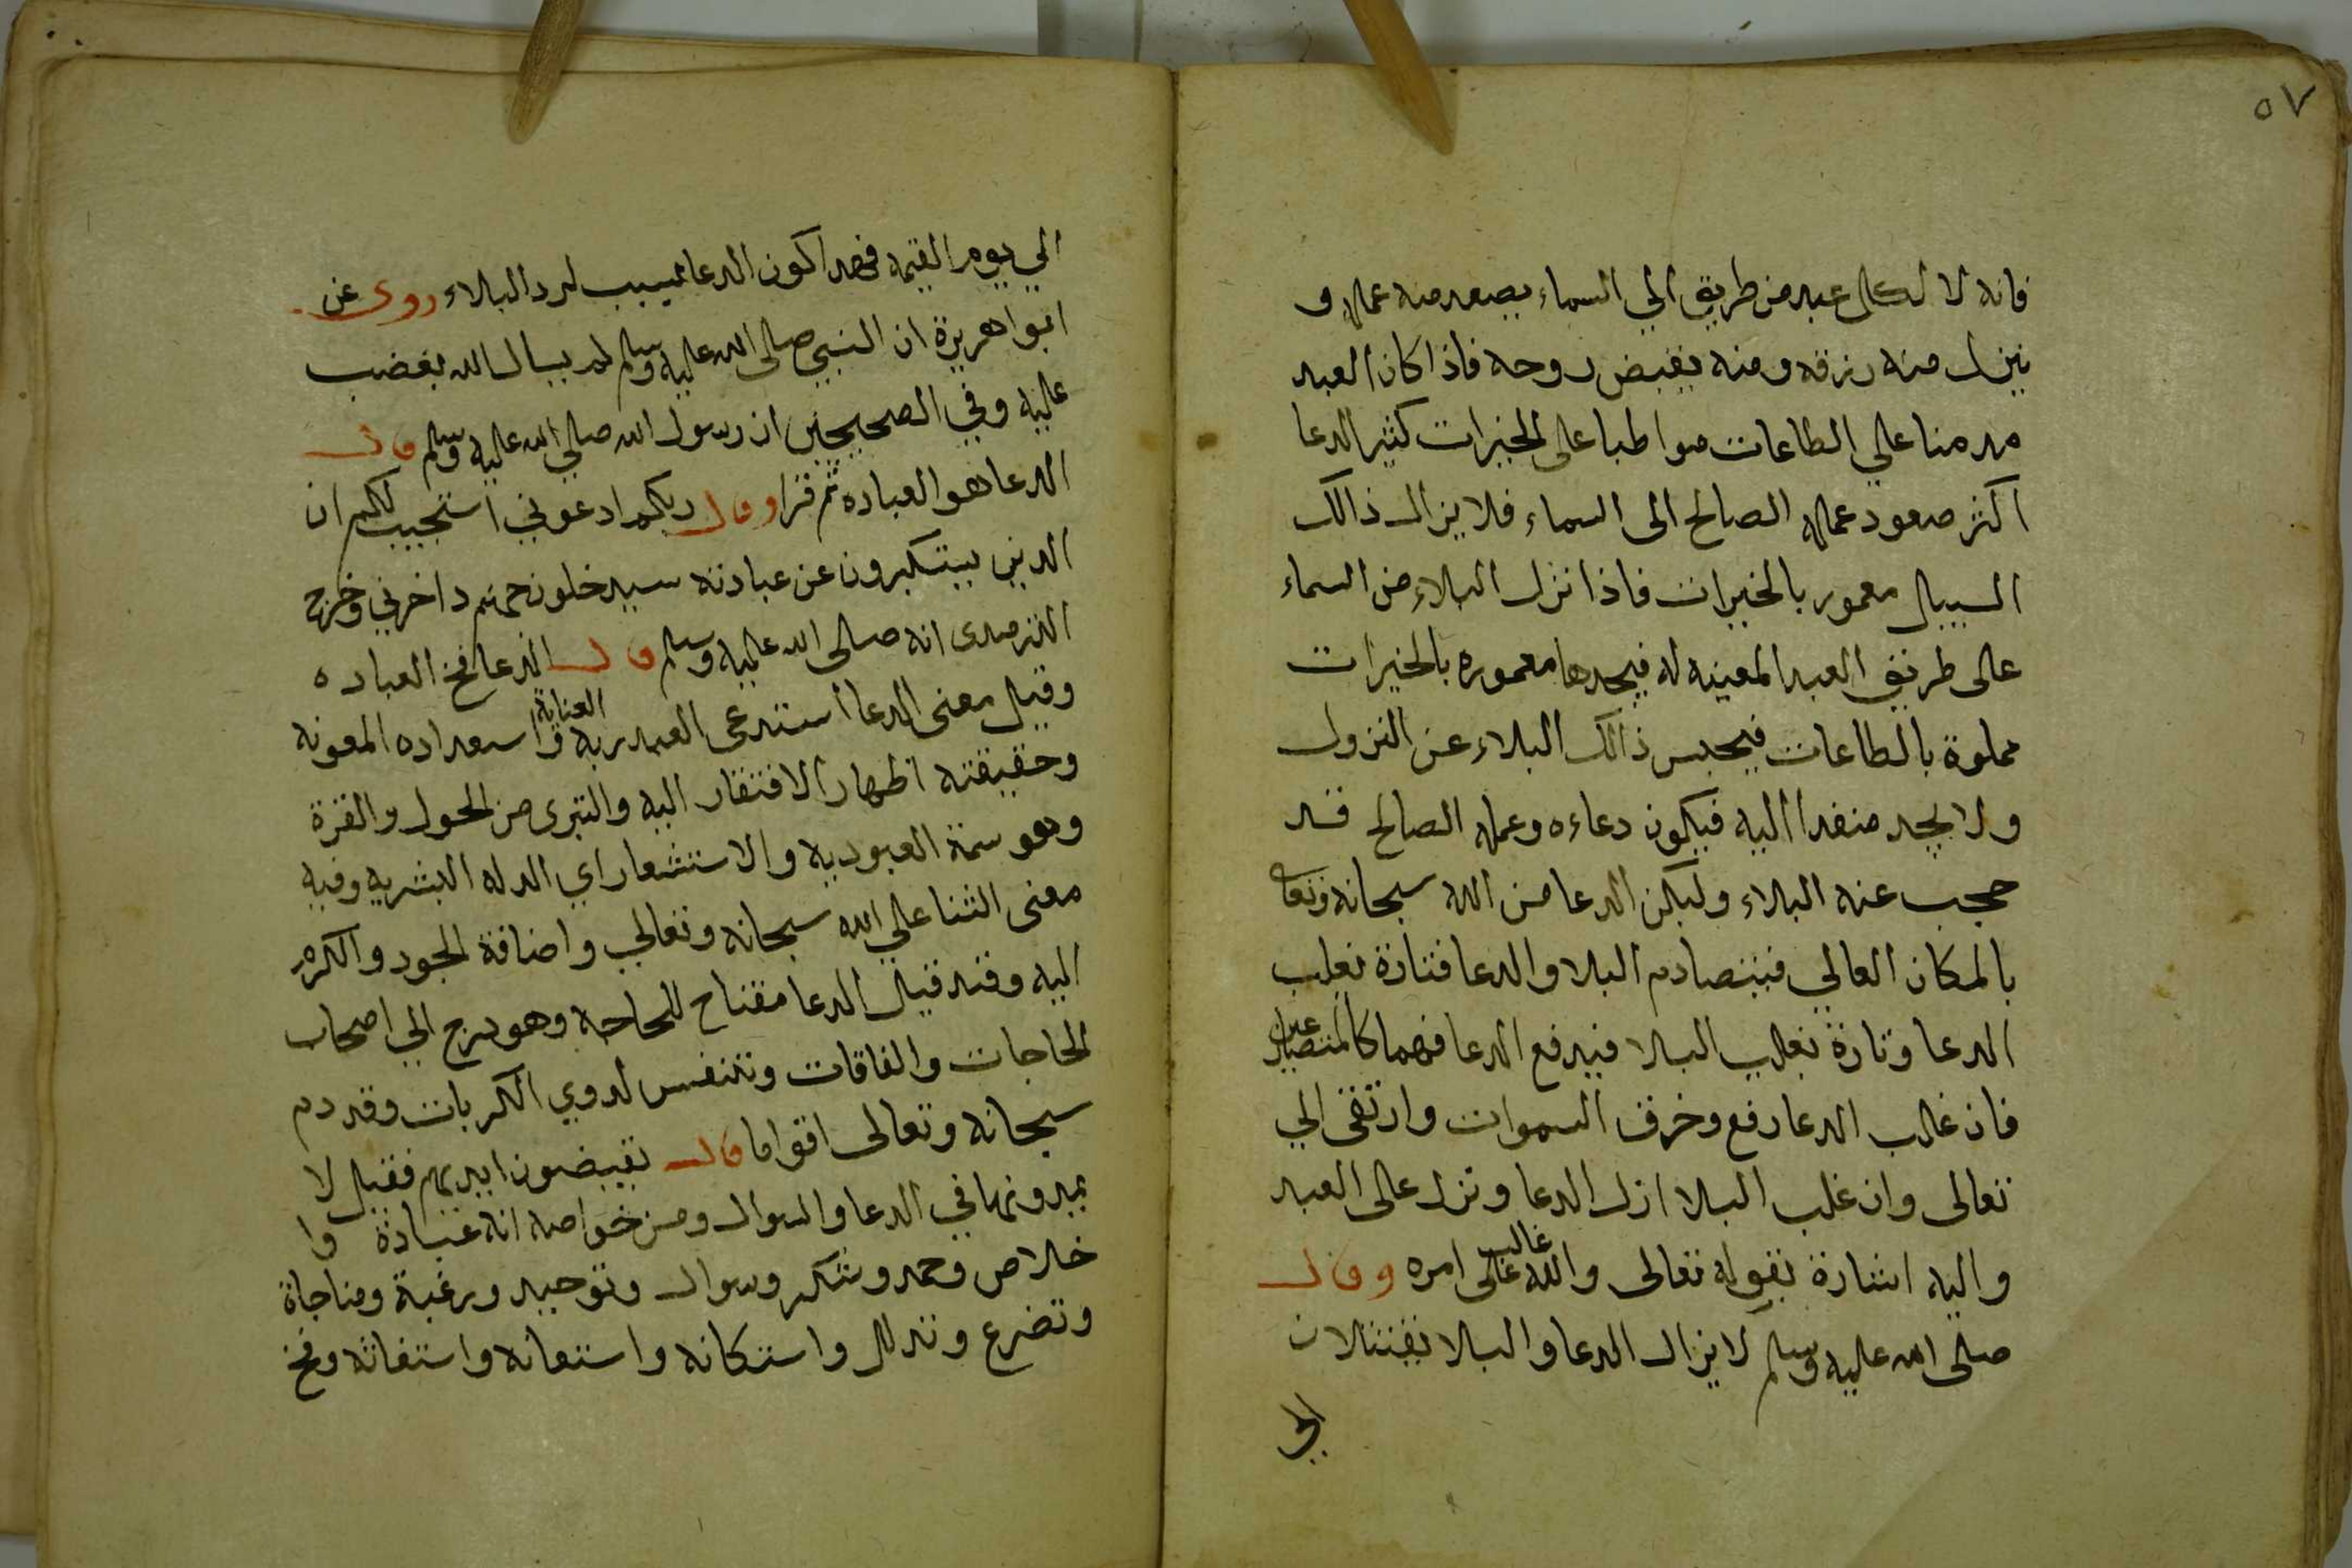 ٥٧
فانه لا لكل عبد من طريق الي السماء يصعد منه عمله و
ينزل منه رزقه ومنه يقبض روحه فاذا كان العبد
مدمنا علي الطاعات مواظبا على الخيرات كثير الدعا
اكثر صعود عمله الصالح الى السماء فلا يزال ذالك
السبيل معمور بالخيرات فاذا نزل البلاء من السماء
على طريق العبد المعينه له فيجدها معموره بالخيرات
مملوة بالطاعات فيحبس ذالك البلاء عن النزول
ولا يجد منفدا اليه فيكون دعاءه وعمله الصالح قد
حجب عنه البلاء وليكن الدعا من الله سبحانه وتعا
بالمكان العالي فيتصادم البلا والدعا فتارة يغلب
الدعا وتارة يغلب البلا فيدفع الدعا فهما كالمتصارعين
فان غلب الدعا رفع وخرق السموات وارتقى الي
تعالى وان غلب البلا ازل الدعا ونزل على العبد
واليه اشارة بقوله تعالى والله غالب على امره وقال
صلى الله عليه وسلم لا يزال الدعا والبلا يقتتلان
الي
الي يوم القيمه فهدا كون الدعا سبب لرد البلاء روى عن
ابوا هريرة ان النبي صلى الله عليه وسلم لم يسال الله يغضب
عليه وفي الصحيحين ان رسول الله صلي الله عليه وسلم قال
الدعا هو العباده ثم قرا وقال ربكم ادعوني استجيب لكم ان
الدين يستكبرون عن عبادته سيدخلون جهنم داخرني وخرج
الترمدى انه صلى الله عليه وسلم قال الدعا مخ العباده
وقيل معنى الدعا استدعى العبد ربه العناية واسمداده المعونه
وحقيقته اظهار الافتقار اليه والتبرى من الحول والقوة
وهو سمة العبوديه والاستشعار اي الدله البشريه وفيه
معنى الثنا علي الله سبحانه وتعالي واضافة الجود والكرم
اليه وقد قيل الدعا مفتاح للحاجه وهو درج الي اصحاب
الحاجات والفاقات وتتنفس لدوي الكربات وقد دم
سبحانه وتعالى اقواما قال يقبضون ايديهم فقيل لا
يمدونها في الدعا والسوال ومن خواصه انه عبادة وا
خلاص وحمد وشكر وسوال وتوحيد ورغبة ومناجاة
وتضرع وتدلل واستكانه واستعانه واستغاثه ومخ